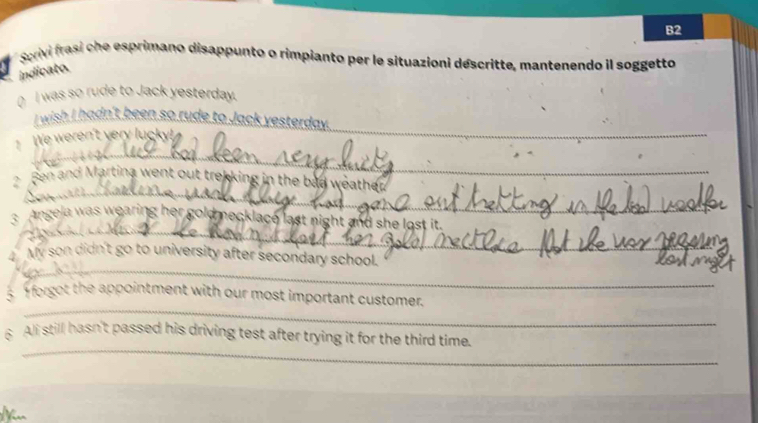 B2
Scrivi frasi che esprimano disappunto o rimpianto per le situazioni descritte, mantenendo il soggetto
indicato.
0 I was so rude to Jack yesterday.
I wish I hadn't been so rude to Jack yesterday.
1 We weren't very lucky!
We wish we had been very lucky
2 Ben and Martina went out trekking in the bad weather.
Ben and Martina wish they had gone out trekking in the bad weather
3 Angela was wearing her gold necklace last night and she lost it.
Angela she hadn't lost her gold necklace that she was wearing
last night
4 My son didn't go to university after secondary school.
My
5 I forgot the appointment with our most important customer.
6 Ali still hasn't passed his driving test after trying it for the third time.